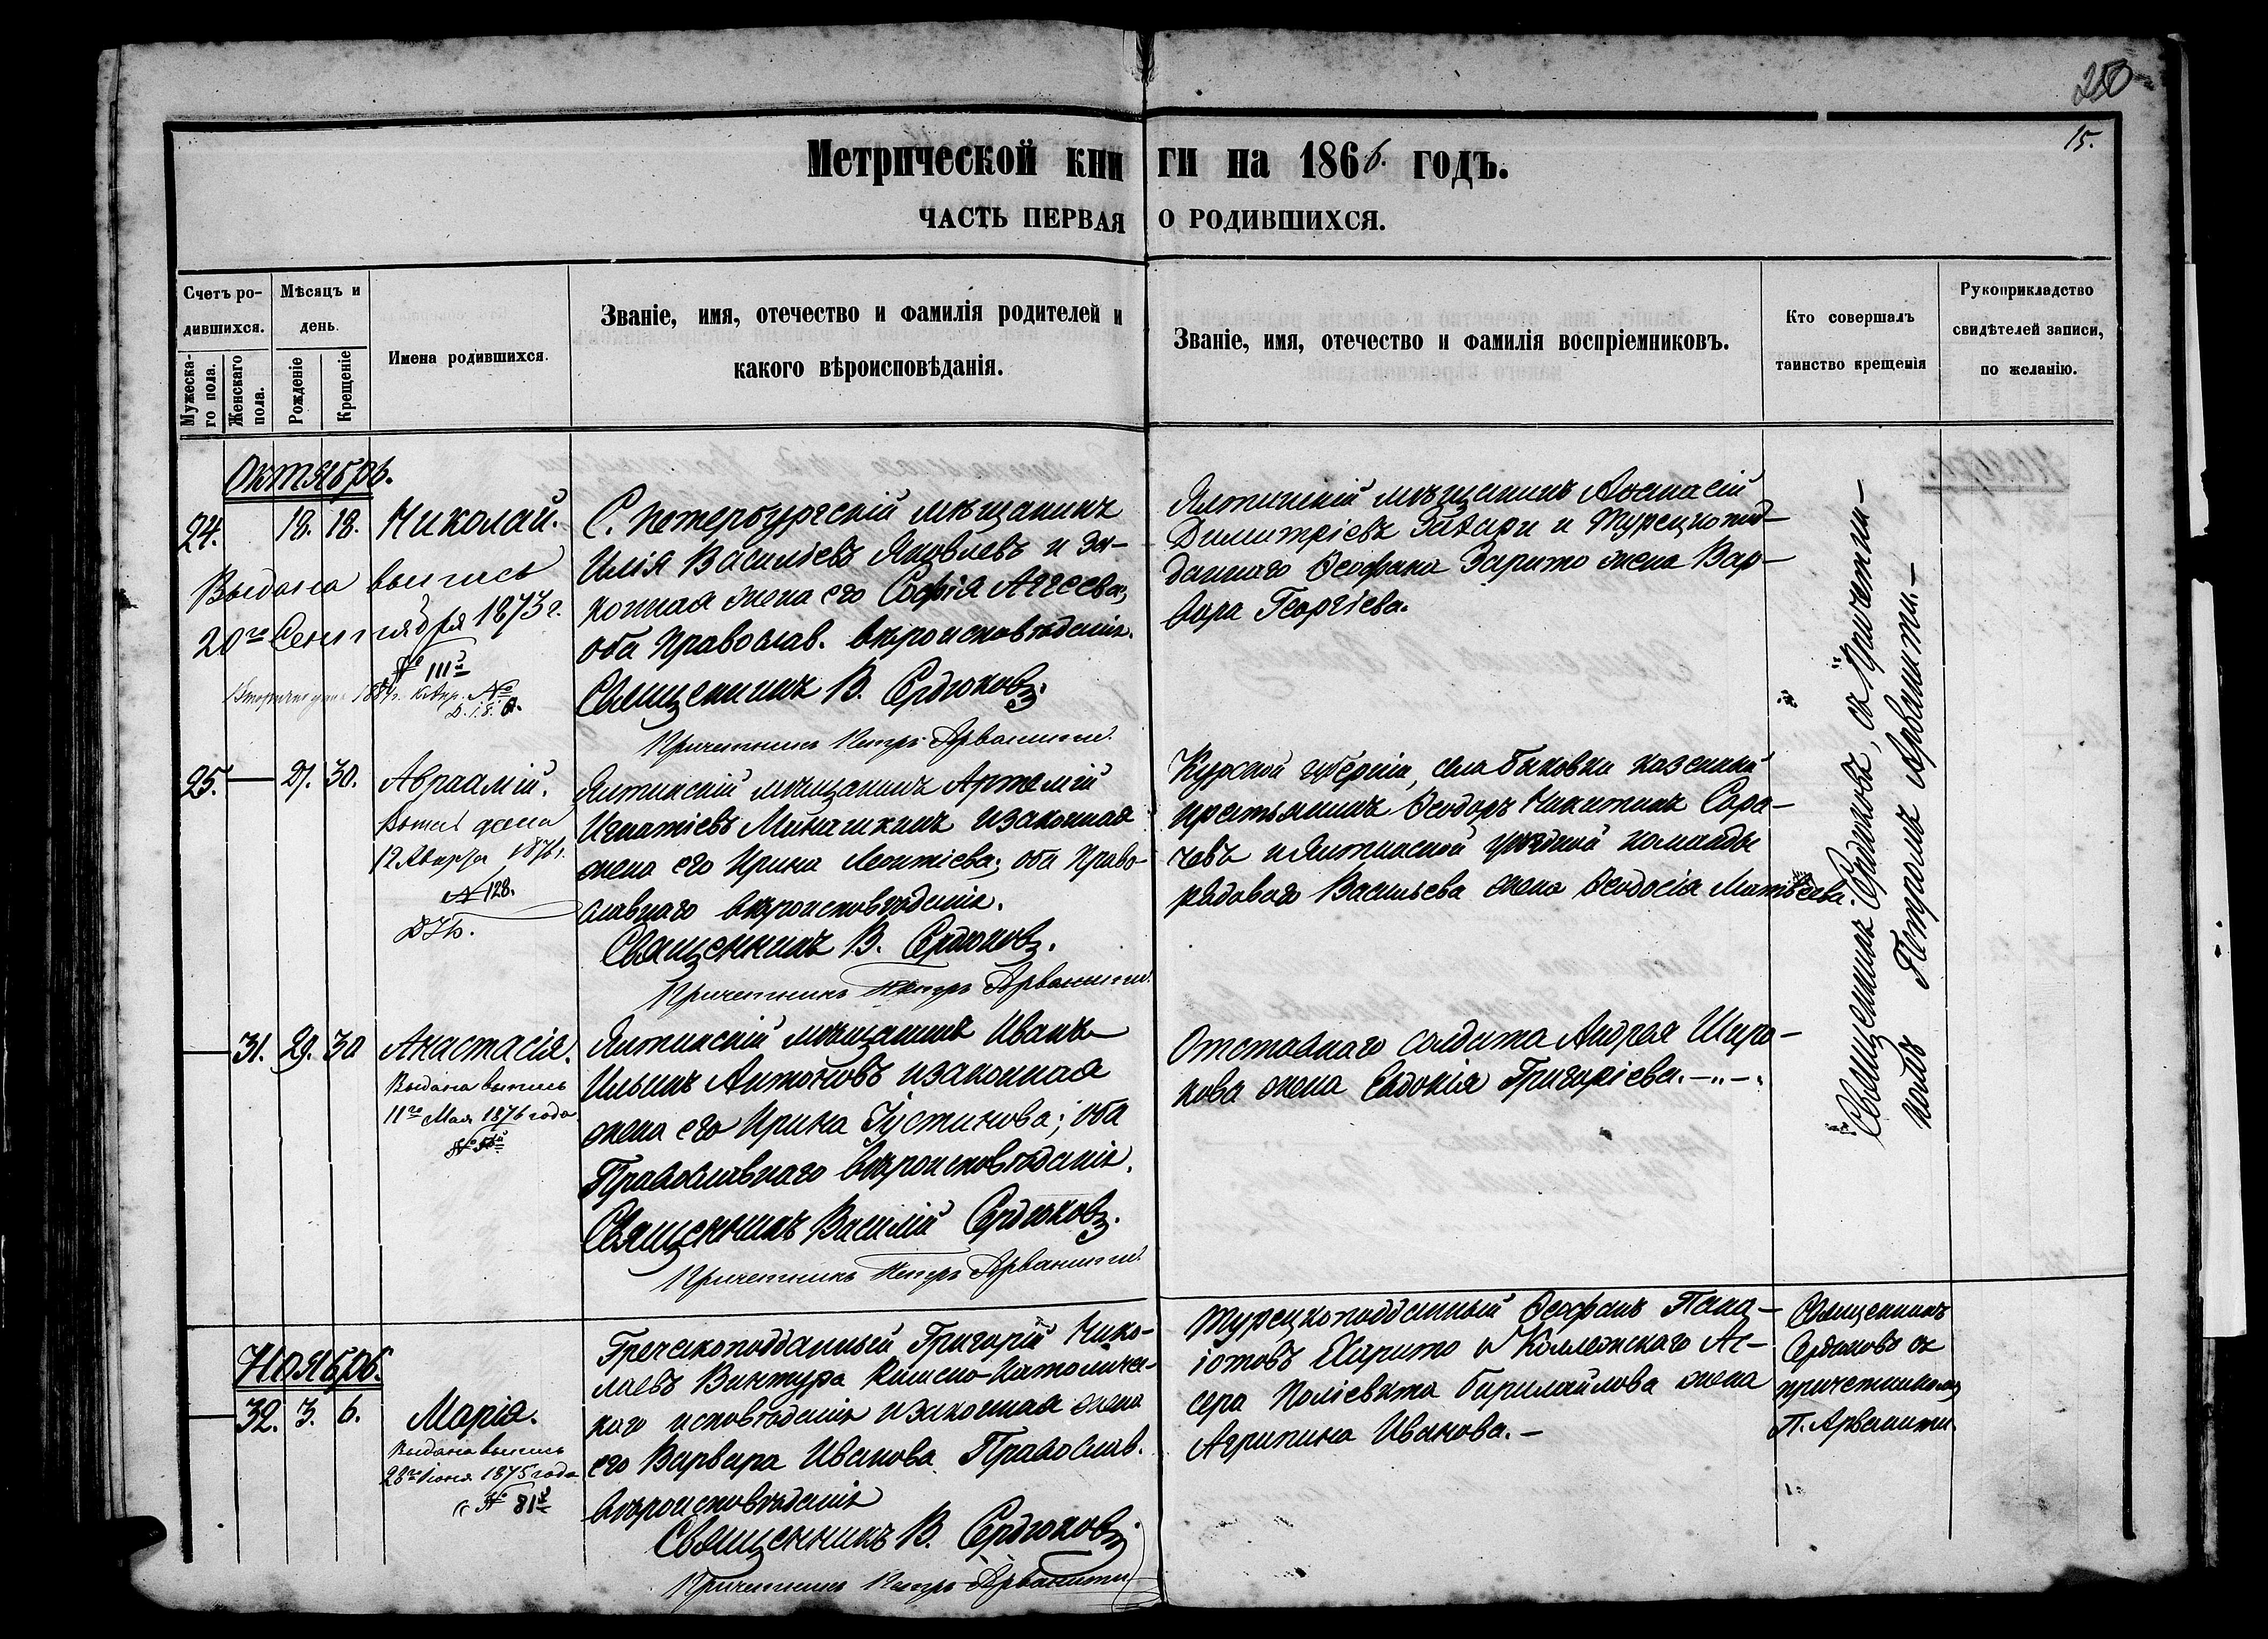 250
15.
Метрической книги на 1866. годъ.
ЧАСТЬ ПЕРВАЯ О РОДИВШИХСЯ.
Счетъ родившихся.
Мужескаго пола.
Женскаго пола.
Мѣсяцъ и день.
Рожденіе
Крещеніе
Имена родившихся.
Званіе, имя, отечество и фамилія родителей и
какого вѣроисповѣданія.
Званіе, имя, отечество и фамилія воспріемниковъ.
Кто совершалъ
таинство крещенія
Рукоприкладство
свидѣтелей записи,
по желанію.
Октябрь.
24. 18. 18. Николай.
Выдана выпись
20го Сентября 1873 г.
№ 111
С. Петербургскій мѣщанинъ
Илія Васильевъ Яковлевъ и за-
конная жена его Софія Аггеева,
оба Православ. вѣроисповѣданія.
Священникъ В. Сердюковъ.
Причетникъ Петръ Арванити.
Ялтинскій мѣщанинъ Аѳанасій
Димитріевъ и Турецкопод-
даннаго Ѳеофана Харито жена Вар-
вара Георгіева.
Священникъ Сердюковъ, съ Причетни-
комъ Петромъ Арванити.-
25. — 27. 30. Авраамій.
12 1876 г.
№ 128.
Ялтинскій мѣщанинъ Артемій
Игнатіевъ Минашкинъ и законная
жена его Ирина Леонтіева; оба Право-
славнаго вѣроисповѣданія.
Священникъ В. Сердюковъ.
Причетникъ Петръ Арванити.
Курской губерніи, села Быковки казенный
крестьянинъ Ѳеодоръ Никитинъ Сора-
чевъ и Ялтинской уѣздной команды
рядоваго Васильева жена Ѳеодосія Матвѣева.
— 31. 29. 30 Анастасія.
Выдана выпись
11го Мая 1876 года
Ялтинскій мѣщанинъ Иванъ
Ильинъ Антоновъ и законная
жена его Ирина Іустинова; оба
Православнаго вѣроисповѣданія.
Священникъ Василій Сердюковъ.
Причетникъ Петръ Арванити.
Отставнаго солдата Андрея Широ-
кова жена Евдокія Григоріева.
Ноябрь.
— 32. 3. 6. Марія.
Выдана выпись
28го Іюня 1875 года
№ 81
Греческоподданный Григорій Нико-
лаевъ Винтура Римско-Католичес-
каго исповѣданія и законная жена
его Варвара Иванова Православ.
вѣроисповѣданія
Священникъ В. Сердюковъ.
Причетникъ Петръ Арванити
Турецкоподданный Ѳеофанъ Пана-
іотовъ Харито и Коллежскаго Ас-
сера Поліевкта Гирилайлова жена
Агрипина Иванова. -
Священникъ
Сердюковъ съ
причетникомъ
П. Арванити.